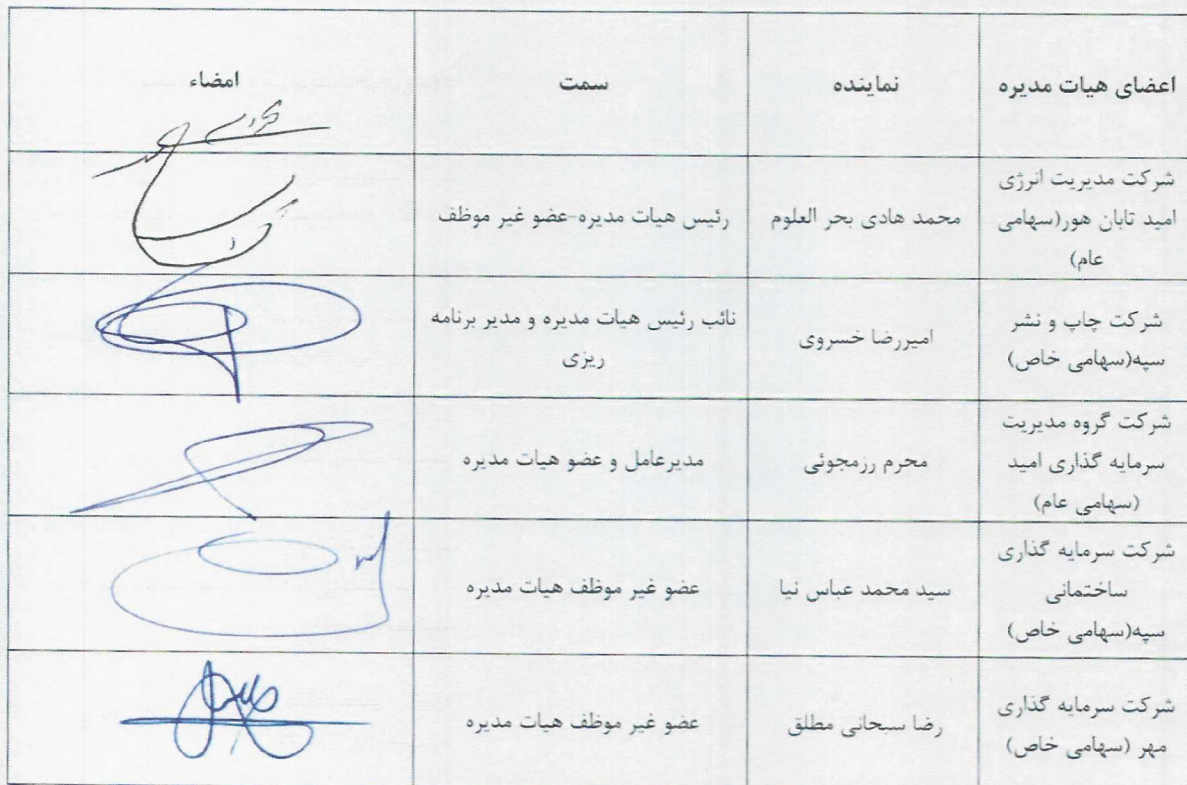 اعضای هیات مدیره
نماینده
سمت
امضاء
شرکت مدیریت انرژی
امید تابان هور(سهامی
عام)
محمد هادی بحر العلوم
رئیس هیات مدیره-عضو غیر موظف
شرکت چاپ و نشر
سپه(سهامی خاص)
امیررضا خسروی
نائب رئیس هیات مدیره و مدیر برنامه
ریزی
شرکت گروه مدیریت
سرمایه گذاری امید
(سهامی عام)
محرم رزمجوئی
مدیرعامل و عضو هیات مدیره
شرکت سرمایه گذاری
ساختمانی
سپه(سهامی خاص)
سید محمد عباس نیا
عضو غیر موظف هیات مدیره
شرکت سرمایه گذاری
مهر (سهامی خاص)
رضا سبحانی مطلق
عضو غیر موظف هیات مدیره